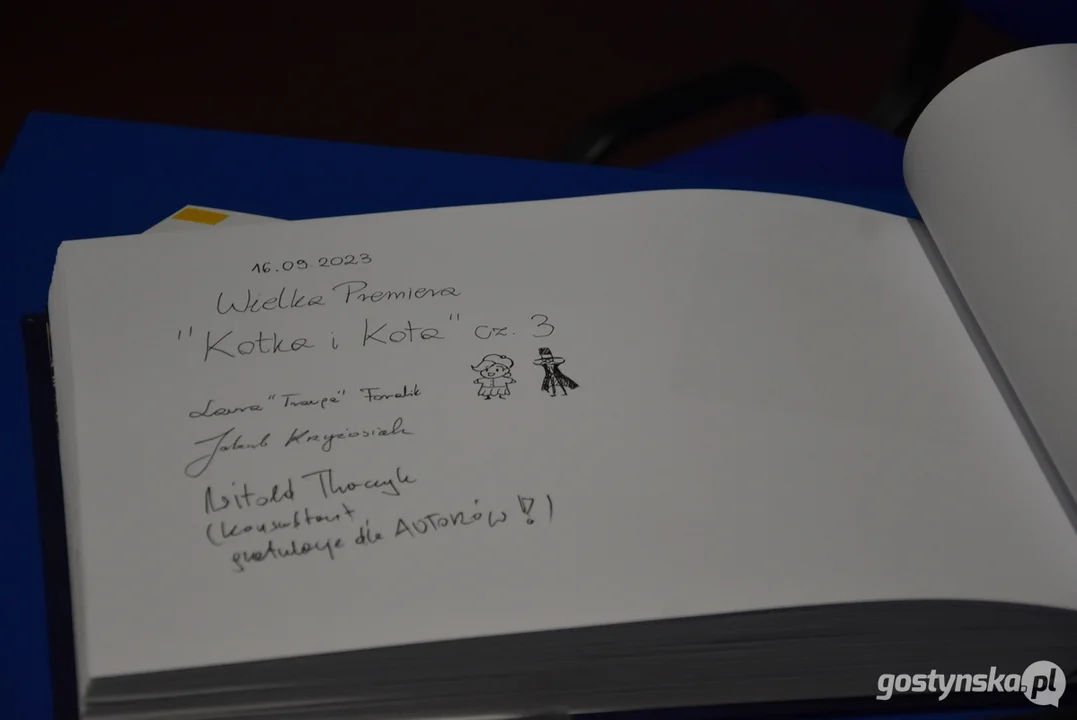 16.09.2023
Wielka Premiera
"Kotka i Kota" cz. 3
Laura "Traupa" Foralik
Jakub Krzyżosiak
Witold Tkaczyk
(konsultant,
gratulacje dla AUTORÓW!)
gostynska.pl